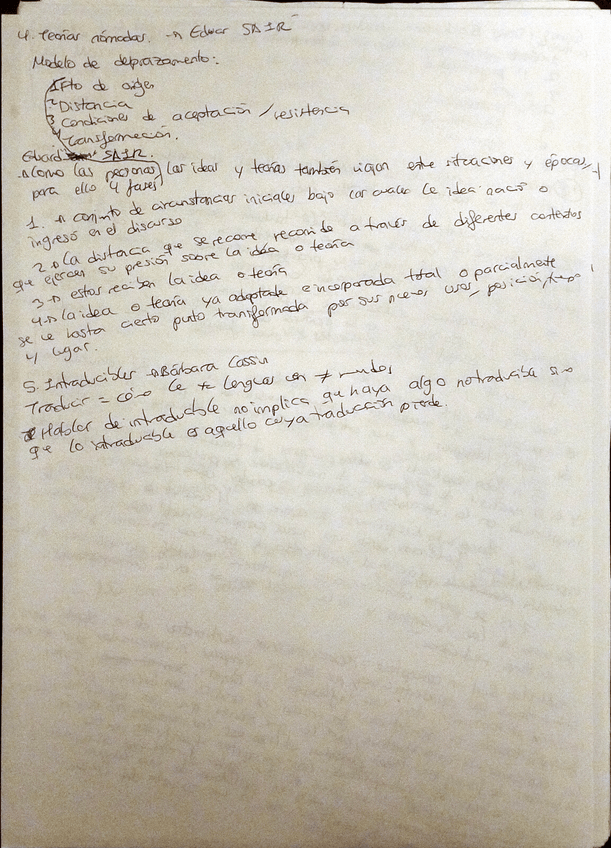 4. Teorías nómadas. → Edwar SAIR
Modelo de deprazamento:
1 Pto de origen
2 Distancia
3 Condiciones de aceptación / resistencia
4 Transformación.
Eduard SAIR.
→ Como las personas, las ideas y teorías también viajan entre situaciones y épocas,
para ello 4 fases
1. → conjunto de circunstancias iniciales bajo las cuales la idea nació o
ingresó en el discurso
2. → la distancia que se recorre recorrido a través de diferentes contextos
que ejercen su presión sobre la idea o teoría
3. → estos reciben la idea o teoría
4. → la idea o teoría ya adaptada e incorporada total o parcialmente
se ve hasta cierto punto transformada por sus nuevos usos, posición,
y lugar.
5. Intraducibles → Bárbara Cassin
Traducir = cómo le ≠ lenguas con ≠ mundos
Hablar de intraducible no implica que haya algo no traducible sino
que lo intraducible es aquello cuya traducción pierde.